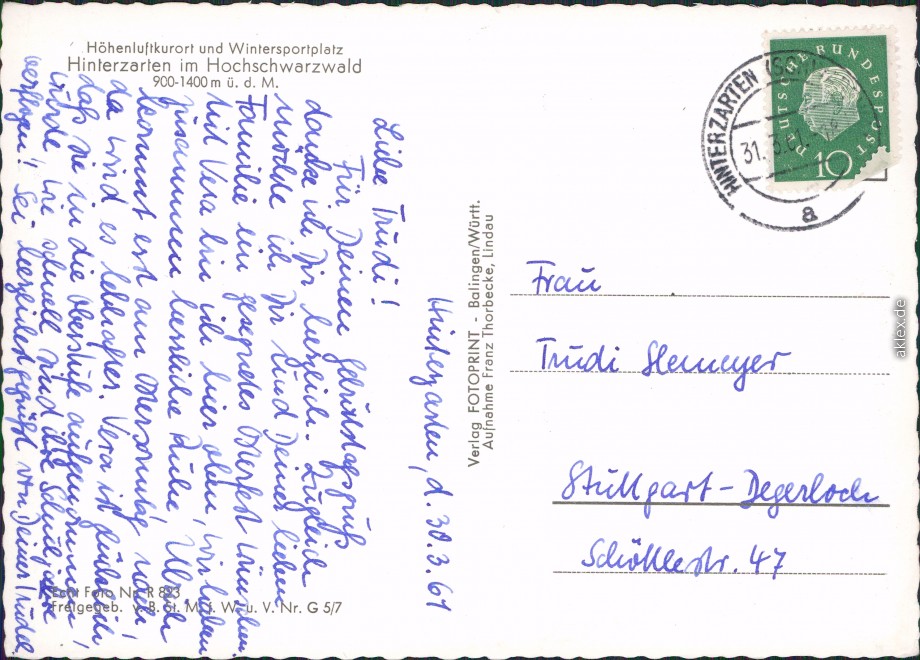 Höhenluftkurort und Wintersportplatz
Hinterzarten im Hochschwarzwald
900-1400 m ü. d. M.
Hinterzarten, d. 30.3.61
Liebe Trudi!
Für Deinen Geburtstagsgruß
danke ich Dir herzlich. Zugleich
möchte ich Dir und Deiner lieben
Familie ein gesegnetes Osterfest wünschen.
Mit Vera bin ich hier oben, wir haben
zusammen herrliche Ruhe. Ulrich
kommt erst am Ostersonntag nach,
da wird es lebhafter. Vera ist glücklich,
daß sie in die Oberstufe aufgenommen
wurde. Wie schnell sind die Schuljahre
verflogen! Sei herzlichst gegrüßt von Deiner Trudel
Echt Foto Nr. R 893
Freigegeb. v. B. St. M. f. W. u. V. Nr. G 5/7
Verlag FOTOPRINT - Balingen/Württ.
Aufnahme Franz Thorbecke, Lindau
DEUTSCHE BUNDESPOST
10
HINTERZARTEN
31.3.61
a
Frau
Trudi
Stuttgart-Degerloch
Schöttlestr. 47
aklex.de